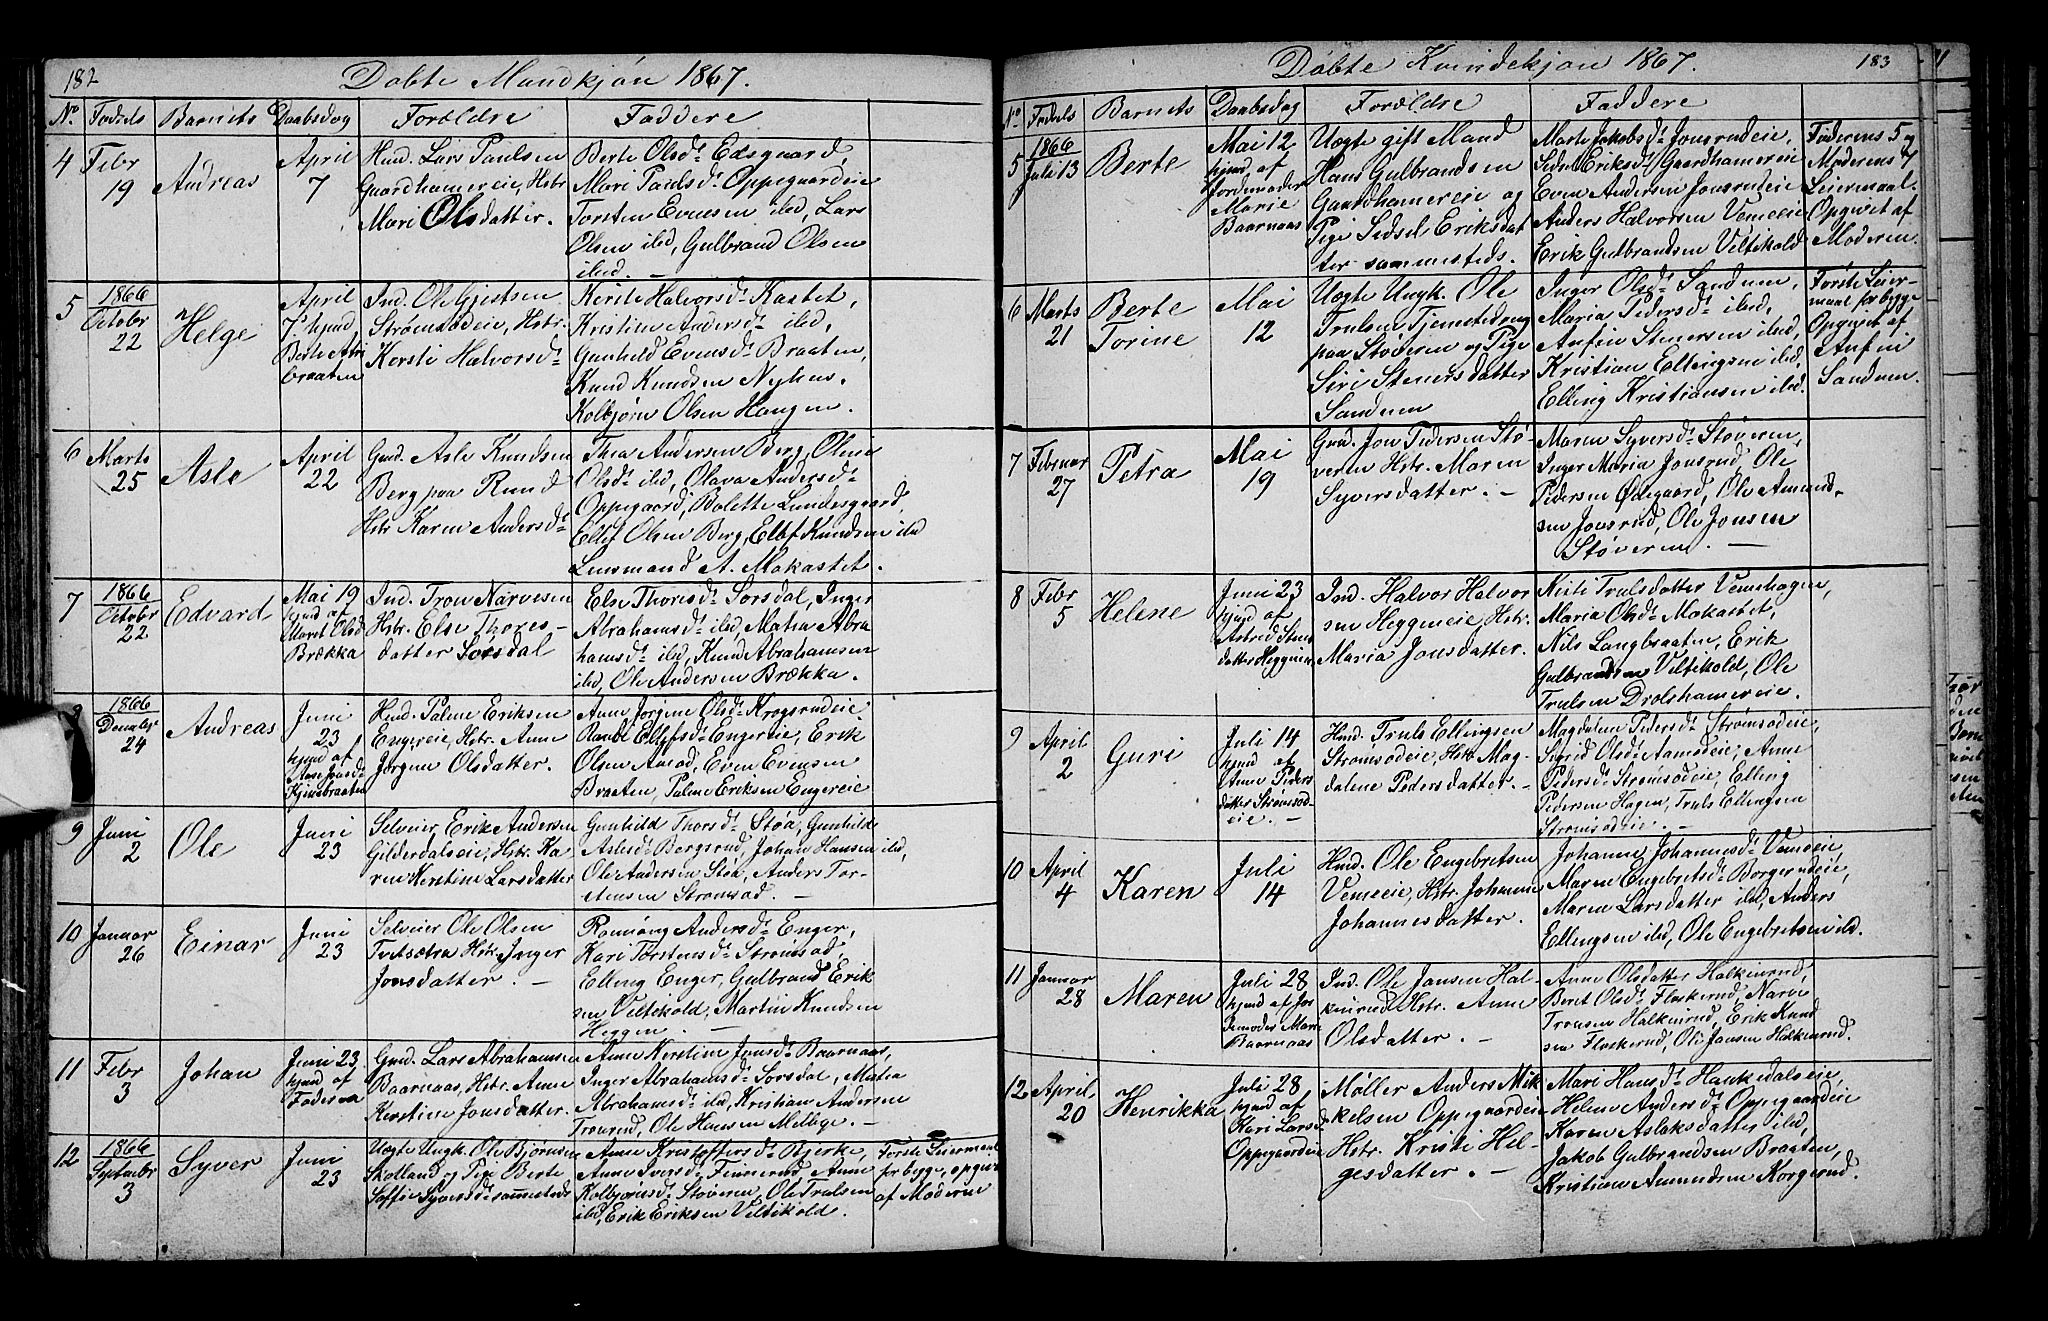 182
Døbte Mandkjøn 1867.
No. Fødsels Barnets Daabsdag Forældre Faddere
4 Febr 19
Andreas
April 7
Hmd. Lars Paulsen
Gaardhamereie, Hstr.
Mari Olsdatter.
Berte Olsd. Edsgaard,
Mari Paulsd. Oppegaardeie
Torsten Evensen ibd, Lars
Olsen ibd, Gulbrand Olsen
ibid. —
5 1866 October 22
Helge
April
7 hjmd,
Berte
braaten
Ind. Ole Gjestsen
Strømsødeie, Hstr.
Kersti Halvorsd.
Kersti Halvorsd. Kastet,
Kristien Andersd. ibd,
Gunhild Evensd. Braaten,
Knud Knudsen Nyhus,
Kolbjørn Olsen Haugen.
6 Marts 25
Asle
April 22
Gmd. Asle Knudsen
Berg paa Rund
Hstr Karen Andersd.
Thea Andersen Berg, Olina
Olsd. ibd, Olava Andersd.
Oppegaard, Bolette Lundesgaard,
Ellef Olsen Berg, Ellef Knudsen ibd
Lensmand A. Mokastet.
7 1866 October 22
Edvard
Mai 19
hjmd af
Marit Olsd
Brækka
Ind. Tron Narvesen
Hstr. Else Thores-
datter Sørsdal
Else Thoresd. Sørsdal, Inger
Abrahamsd. ibd, Matea Abra
hamsd. ibd, Knud Abrahamsen
ibd, Ole Andersen Brækka.
8 1866 December 24
Andreas
Juni 23
hjmd af
Aase Jonsd.
Kjinsbraaten
Hmd. Palme Eriksen
Engereie, Hstr. Anne
Jørgine Olsdatter.
Anne Jørgine Olsd. Krogsrudeie,
Ellefsd. Engereie, Erik
Olsen Amod, Even Evensen
Braaten, Palme Eriksen Engereie
9 Juni 2
Ole
Juni 23
Selveier, Erik Andersen
Gilderdalseie, Hstr. Ka
ren Kerstine Larsdatter
Gunhild Thorsd. Støa, Gunhild
Aslesd. Bergsrud, Johan Hansen ibd,
Ole Andersen Støa, Anders Tor-
stensen Strømsød. —
10 Januar 26
Einar
Juni 23
Selveier Ole Olsen
Tvetsætra Hstr. Inger
Jonsdatter. —
Rønnøug Andersd. Enger,
Kari Torstensd. Strømsød,
Elling Enger, Gulbrand Erik
sen Viltikold, Martin Knudsen
Heggen. —
11 Febr 3
Johan
Juni 23
hjmd af
Gmd. Lars Abrahamsen
Baarnaas, Hstr. Anne
Kerstine Jonsdatter.
Anne Kerstine Jonsd. Baarnaas,
Inger Abrahamsd. Sørsdal, Matea
Abrahamsd. ibd, Kristian Andersen
Tronrud, Ole Hansen Melbye. —
12 1866 Septembr 3
Syver
Juni 23
Uægte Ungk. Ole Bjørnsen
Skotland og Pige Berte
Soffie Syversd. sammesteds
Anne Kristoffersd. Bjerke,
Anne Iversd. Finnerud, Anne
Kolbjørnsd. Støveren, Ole Trulsen
ibd, Erik Eriksen Viltikold.
Første Leiermaal
for begge, opgivet
af Moderen
183
Døbte Kvindekjøn 1867.
No Fødsels Barnets Daabsdag Forældre Faddere
5 1866 Juli 13
Berte
Mai 12
hjmd af
Jordemoder
Marie
Baarnaas
Uægte gift Mand
Hans Gulbrandsen
Gaardhamereie og
Pige Sidsel Eriksdat
ter sammesteds.
Marte Jakobsd. Jonsrudeie,
Sidse Eriksd. Gaardhamereie
Even Andersen Jonsrudeie
Anders Halvorsen Vemeeie
Erik Gulbrandsen Viltikold
Faderens 5
Moderens
Leiermaal.
Opgivet af
Moderen.
6 Marts 21
Berte
Torine
Mai 12
Uægte Ungk. Ole
Trulsen Tjenestedreng
paa Støveren og Pige
Siri Stenersdatter
Sandum
Inger Olsd. Sandum,
Maria Pedersd. ibid,
Anfin Stenersen ibid,
Kristian Ellingsen ibd,
Elling Kristiansen ibd.
Første Leier-
maal for begge
Opgivet af
Anfin
Sandum.
7 Februar 27
Petra
Mai 19
Gmd. Jon Pedersen Stø-
veren Hstr. Maren
Syversdatter. —
Maren Syversd. Støveren,
Inger Maria Jonsrud, Ole
Pedersen Ødegaard, Ole Amund-
sen Jonsrud, Ole Jonsen
Støveren. —
8 Febr 5
Helene
Juni 23
hjmd af
Astrid Stens
datter Heggeeie
Ind. Halvor Halvor
sen Heggeneie, Hstr.
Maria Jonsdatter.
Kisti Trulsdatter Vemshagen,
Maria Olsd. Mokastet,
Nils Langbraaten, Erik
Gulbrandsen Viltikold, Ole
Trulsen Drolshamereie.
9 April 2
Guri
Juli 14
hjmd af
Anne Peders
datter Strømsød-
eie. —
Hmd. Truls Ellingsen
Strømsødeie, Hstr. Mag-
dalene Pedersdatter. —
Magdalene Pedersd. Strømsødeie,
Sigrid Olsd. Aamodeie, Anne
Pedersd. Strømsødeie, Elling
Pedersen Hagen, Truls Ellingsen
Strømsødeie. —
10 April 4
Karen
Juli 14
Hmd. Ole Engebretsen
Vemeeie, Hstr. Johanne
Johannesdatter.
Johanne Johannesd. Vemeeie,
Maren Engebretsd. Borgerudeie,
Maren Larsdatter ibd, Anders
Ellingsen ibd, Ole Engebretsen ibd.
11 Januar 28
Maren
Juli 28
hjmd af Jor
demoder Marie
Baarnaas
Ind. Ole Jansen Hal-
kinrud Hstr. Anne
Olsdatter. —
Anne Olsdatter Halkinrud,
Berit Olsd. Flaskerud, Narve
Tronsen Halkinrud, Erik Knud
sen Flaskerud, Ole Jansen Halkinrud.
12 April 20
Henrikka
Juli 28
hjmd af
Kari Larsd
Oppegaardeie
Møller Anders Mik
kelsen Oppegaardeie
Hstr. Kristi Hel-
gesdatter. —
Mari Hansd. Hankedalseie,
Helene Andersd. Oppegaardeie
Karen Aslaksdatter ibd,
Jakob Gulbrandsen Braaten,
Kristian Amundsen Korgerud.